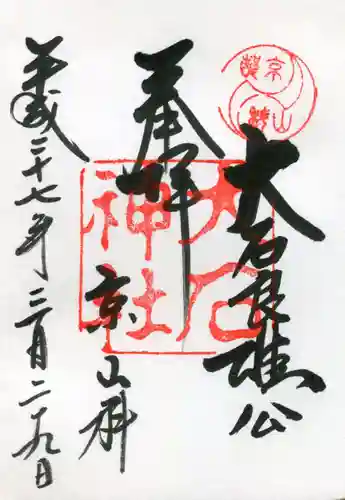 大石良雄公
奉拝
京山科
平成二十七年三月二十九日
大石
神社
京
山科